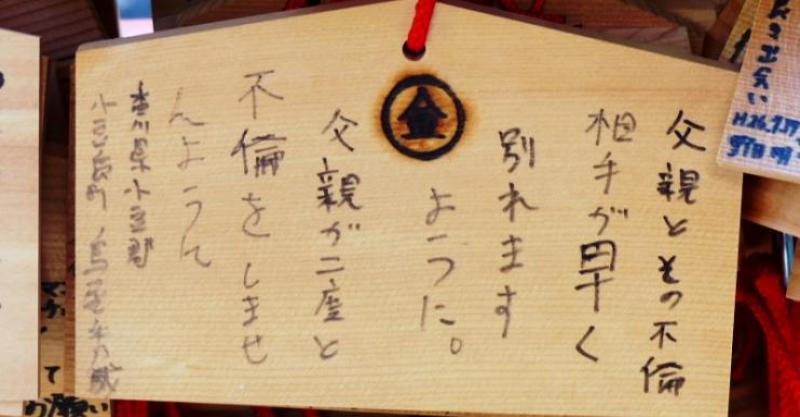 き出会い
父親とその不倫
相手が早く
別れます
ように。
金
父親が二度と
不倫をしませ
んように
香川県小豆郡
小豆島町